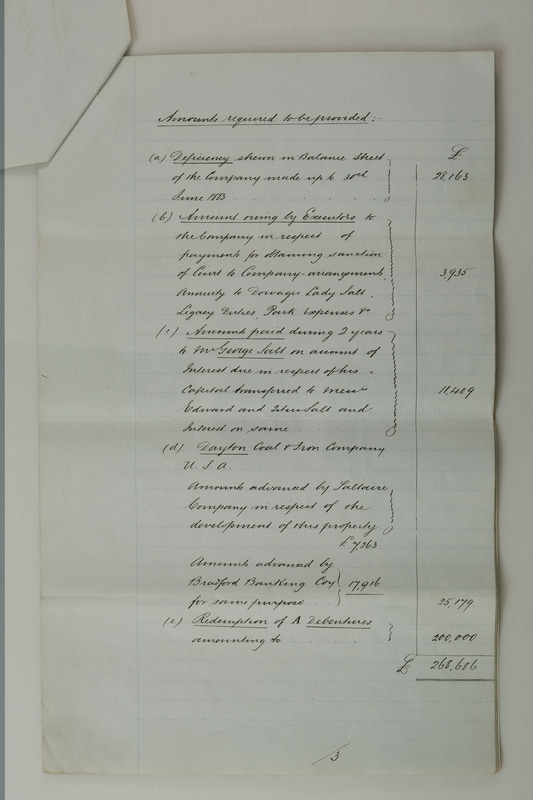 Amounts required to be provided:-
£
(a) Deficiency shewn in Balance Sheet
of the Company made up to 30th 28,163
June 1883
(b) Amount owing by Executors to
the Company in respect of
payments for obtaining sanction
of Court to Company-arrangement, 3,935
Annuity to Dowager Lady Salt,
Legacy Duties, Park Expenses &c
(c) Amounts paid during 2 years
to Mr George Salt on account of
Interest due in respect of his
Capital transferred to Messrs 11,409
Edward and Titus Salt and
Interest on same
(d) Dayton Coal & Iron Company
U.S.A.
Amounts advanced by Saltaire
Company in respect of the
development of this property
£7263
Amounts advanced by
Bradford Banking Coy 17,916
for same purpose 25,179
(e) Redemption of A Debentures
amounting to 200,000
£ 268,686
/3